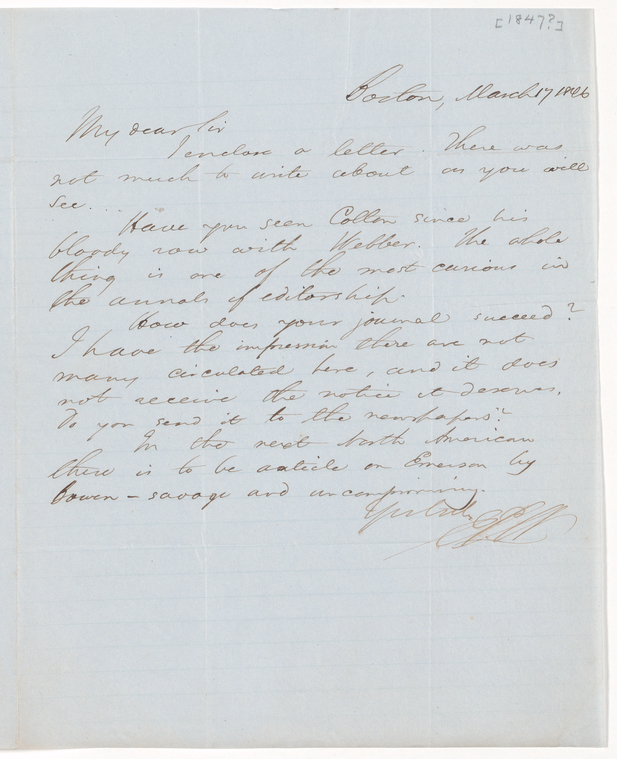 [1847?]
Boston, March 17 1846
My dear Sir
I enclose a letter. There was
not much to write about as you will
see.
Have you seen Colton since his
bloody row with Webber. The whole
thing is one of the most curious in
the annals of editorship.
How does your journal succeed?
I have the impression there are not
many circulated here, and it does
not receive the notice it deserves.
Do you send it to the newspapers?
In the next North American
there is to be article on Emerson by
Bowen – savage and uncompromising.
Yrs truly